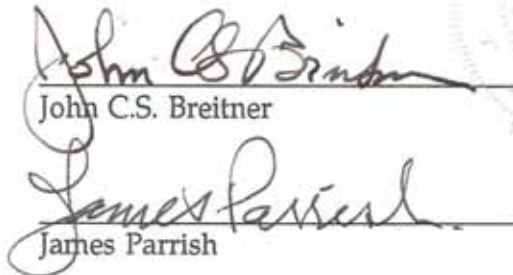 John CS Breitner
John C.S. Breitner
James Parrish.
James Parrish